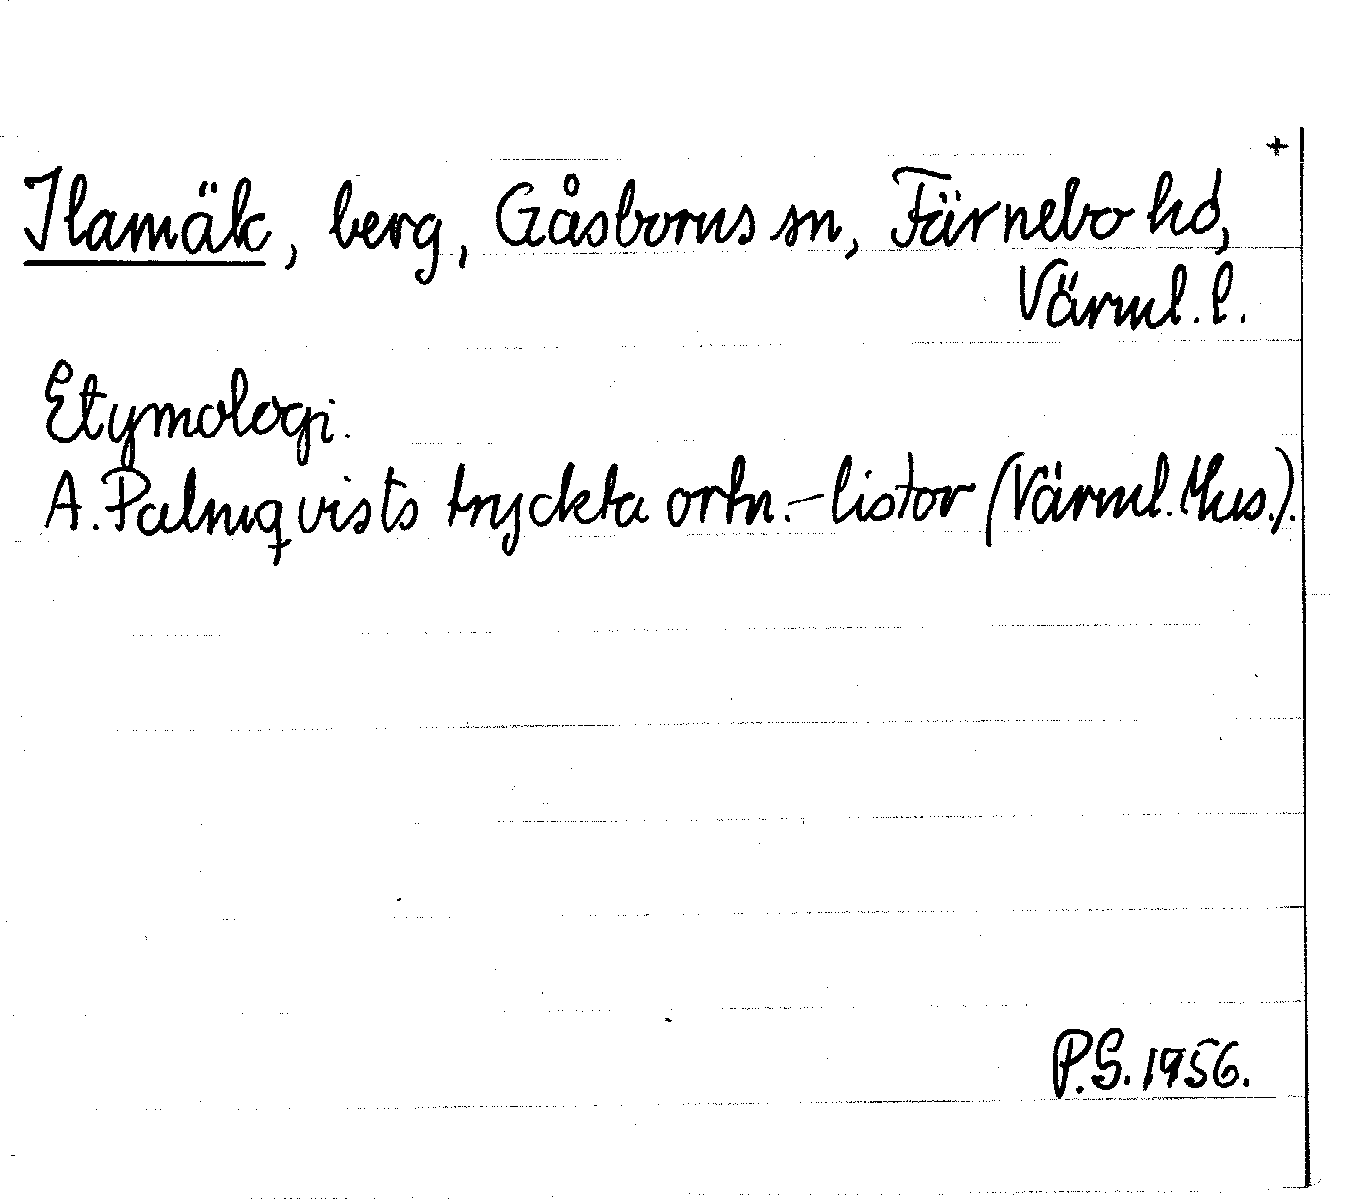 +
Ilamäk, berg, Gåsborns sn, Färnebo hd,
Värml. l.
Etymologi.
A. Palmqvists tryckta ortn.-listor (Värml. Mus.).
P.S. 1956.